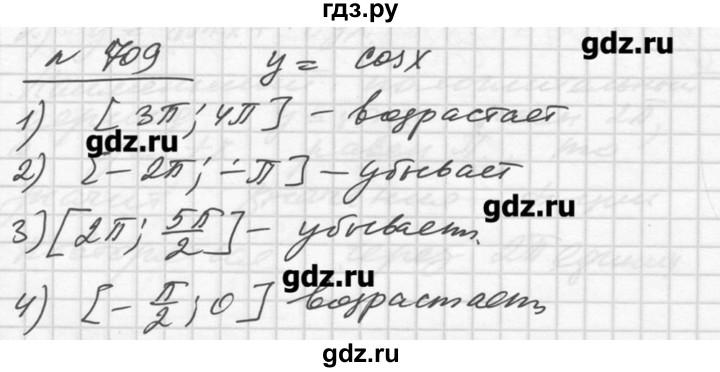 гдз.ру
gdz.ru
№ 709 y = cosx
1) [3π; 4π] – возрастает
gdz.ru
2) [-2π; -π] – убывает
gdz.ru
3) [2π; 5π/2] – убывает
gdz.ru
4) [-π/2; 0] возрастает
gdz.ru